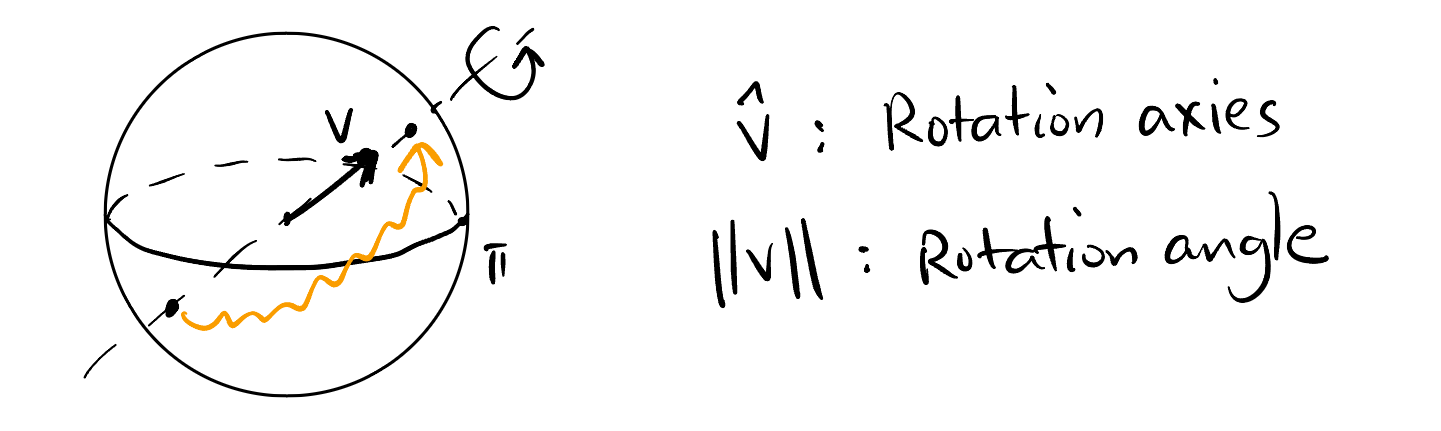 v
π
v̂ : Rotation axies
||v|| : Rotation angle